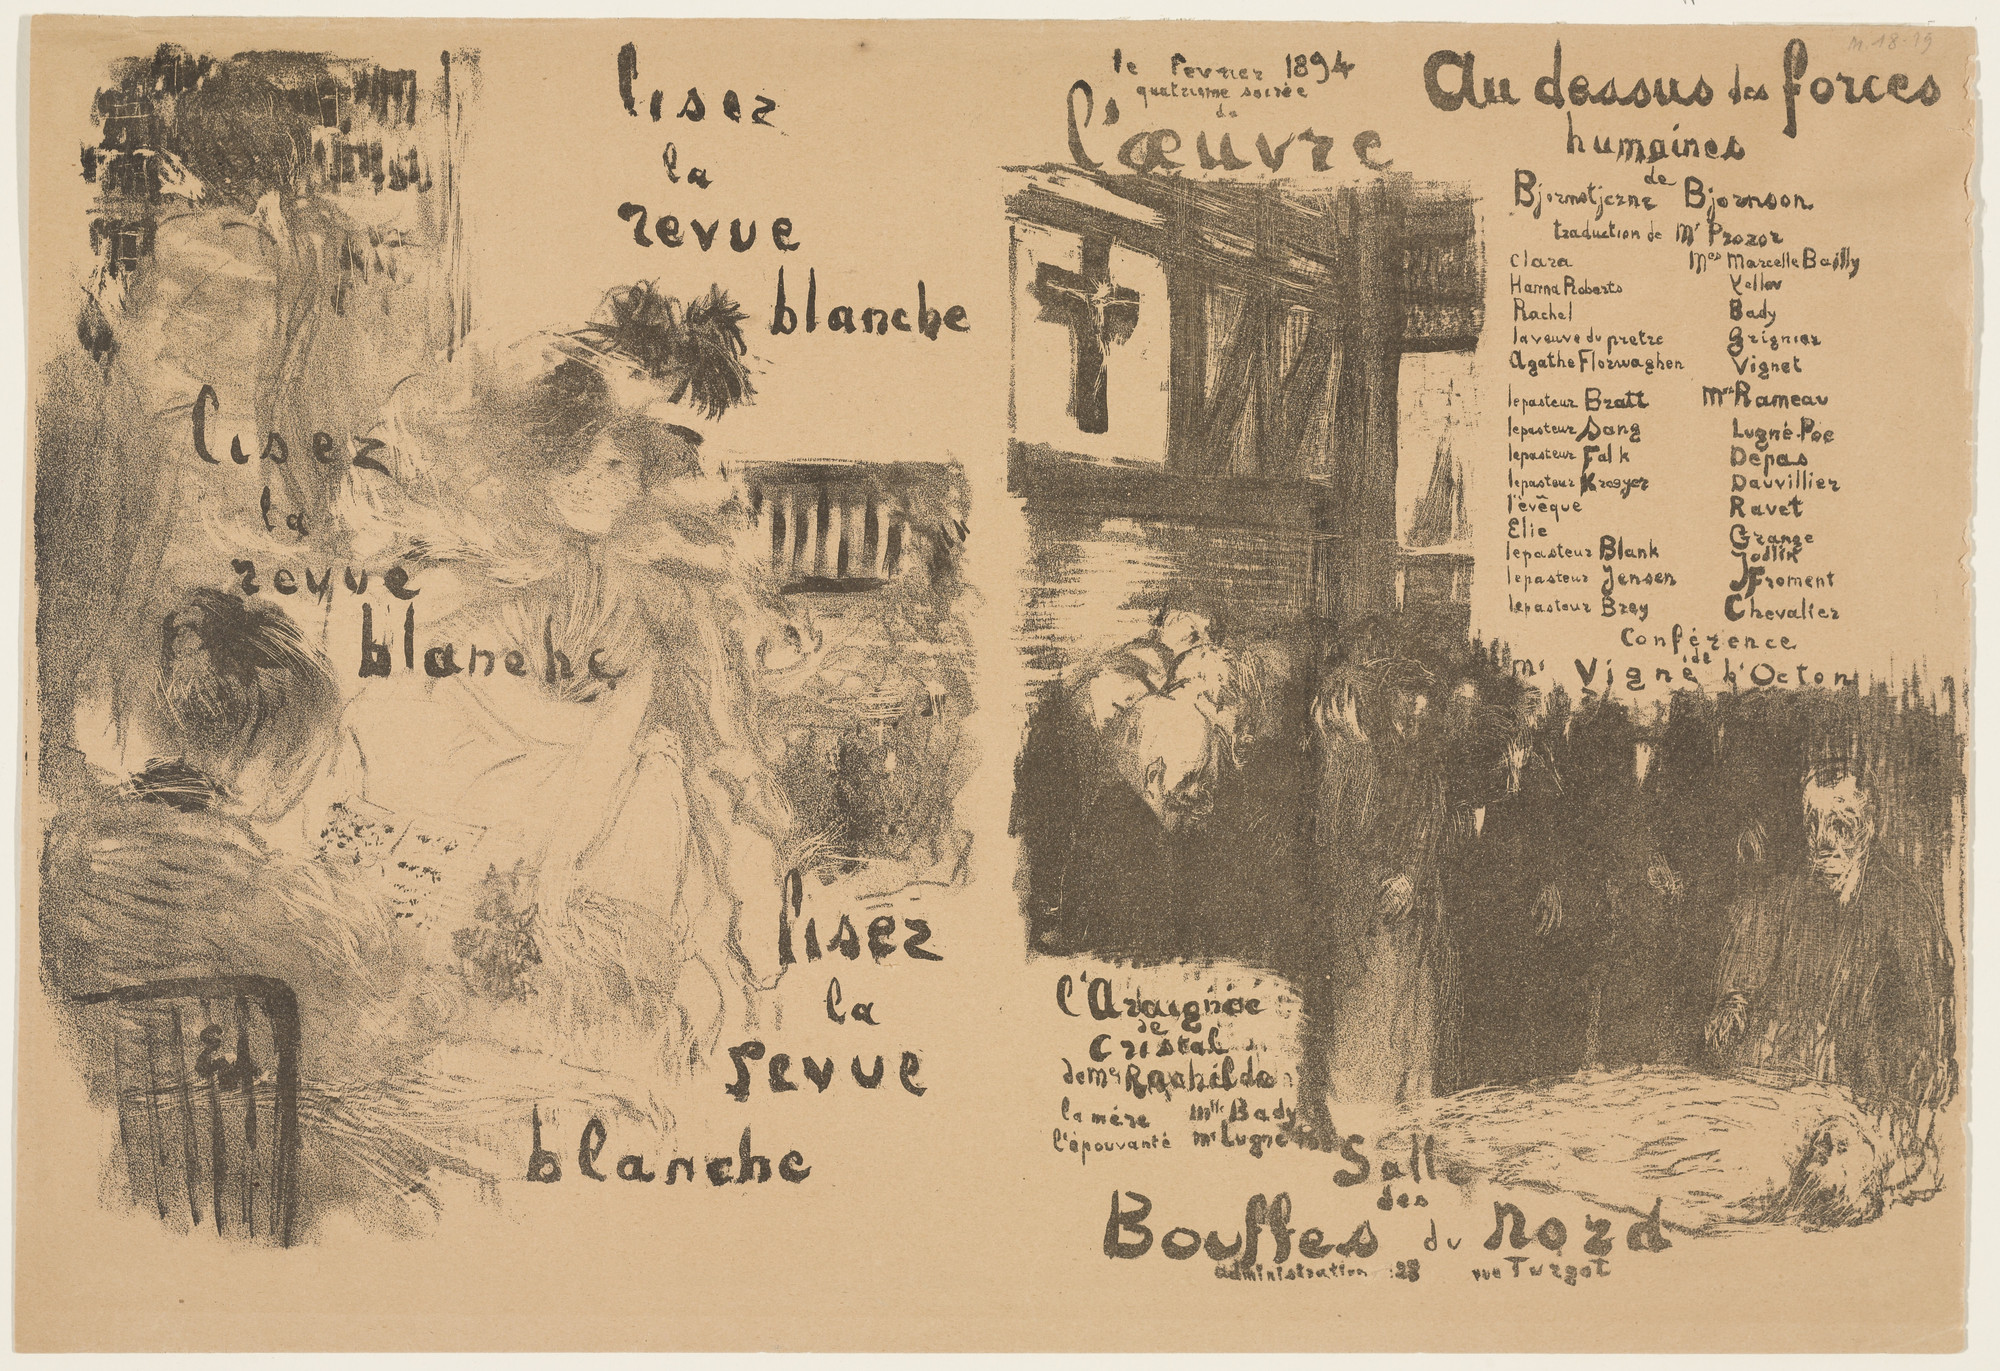 lisez
la
revue
blanche
lisez
la
revue
blanche
lisez
la
revue
blanche
EV
M. 18-19
le fevrier 1894
quatrieme soirée
de
l'œuvre
Au dessus des forces
humaines
de
Bjornstjerne Bjornson
traduction de Mr Prozor
Clara Mes Marcelle Bailly
Hanna Roberts
Rachel Bady
la veuve du pretre Grignier
Agathe Florwaghen Vignet
le pasteur Bratt Mrs Rameau
le pasteur Sang Lugné-Poe
le pasteur Falk Depas
le pasteur Kroeyer Dauvillier
l'évêque Ravet
Elie Grange
le pasteur Blank Jodlix
le pasteur Jensen Froment
le pasteur Brey Chevalier
Conférence
de
Mr Vigné d'Octon
l'Araignée
de
Cristal
de Me Rachilde
la mére Mlle Bady
l'épouvanté Mr Lugné Poe
Salle
des
Bouffes du Nord
administration : 23 rue Turgot